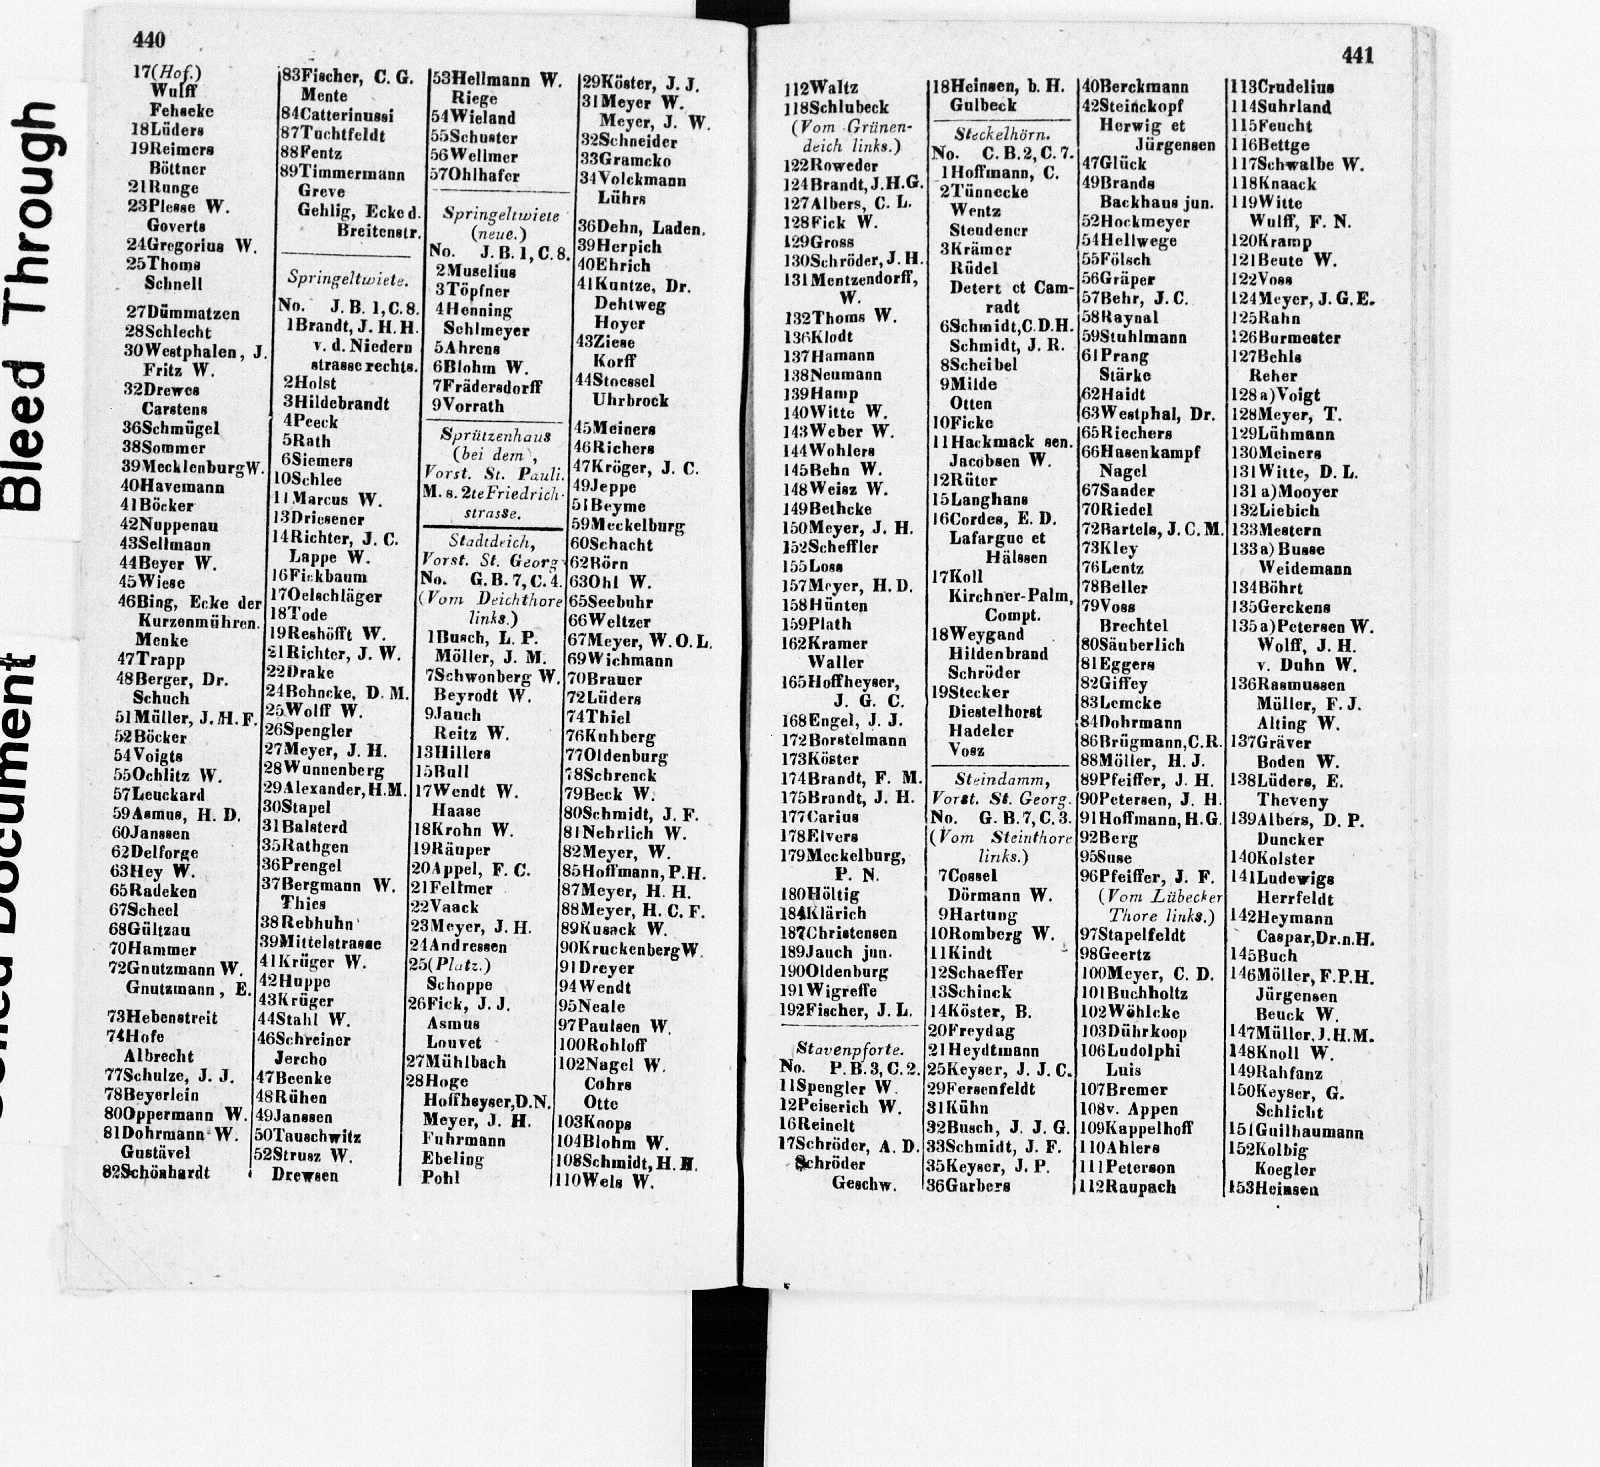 Bleed Through
Document
440
17(Hof.)
Wulff
Fehseke
18Lüders
19Reimers
Böttner
21Runge
23Plesse W.
Goverts
24Gregorius W.
25Thoms
Schnell
27Dümmatzen
28Schlecht
30Westphalen, J.
Fritz W.
32Drewes
Carstens
36Schmügel
38Sommer
39Mecklenburg W.
40Havemann
41Böcker
42Noppenau
43Sellmann
44Beyer W.
45Wiese
46Bing, Ecke der
Kurzenmühren.
Menke
47Trapp
48Berger, Dr.
Schuch
51Müller, J. H. F.
52Böcker
54Voigts
55Ochlitz W.
57Leuckard
59Asmus, H. D.
60Janssen
62Delforge
63Hey W.
65Radeken
67Scheel
68Gültzau
70Hammer
72Gnutzmann W.
Gnutzmann, E.
73Hebenstreit
74Hofe
Albrecht
77Schulze, J. J.
78Beyerlein
80Oppermann W.
81Dohrmann W.
Gustävel
82Schönhardt
83Fischer, C. G.
Mente
84Catterinussi
87Tuchtfeldt
88Fentz
89Timmermann
Greve
Gehlig, Ecke d.
Breitenstr.
Springeltwiete.
No. J. B. 1, C. 8.
1Brandt, J. H. H.
v. d. Niedern
strasse rechts.
2Holst
3Hildebrandt
4Peeck
5Rath
6Siemers
10Schlee
11Marcus W.
13Driesener
14Richter, J. C.
Lappe W.
16Fickbaum
17Oelschläger
18Tode
19Reshöfft W.
21Richter, J. W.
22Drake
24Behncke, D. M.
25Wolff W.
26Spengler
27Meyer, J. H.
28Wunnenberg
29Alexander, H.M.
30Stapel
31Balsterd
35Rathgen
36Prengel
37Bergmann W.
Thies
38Rebhuhn
39Mittelstrasse
41Krüger W.
42Huppe
43Krüger
44Stahl W.
46Schreiner
Jercho
47Beenke
48Rühen
49Janssen
50Tauschwitz
52Strusz W.
Drewsen
53Hellmann W.
Riege
54Wieland
55Schuster
56Wellmer
57Ohlhafer
Springeltwiete
(neue.)
No. J. B. 1, C. 8.
2Muselius
3Töpfner
4Henning
Sehlmeyer
5Ahrens
6Blohm W.
7Frädersdorff
9Vorrath
Sprützenhaus
(bei dem),
Vorst. St. Pauli.
M. s. 2te Friedrich-
strasse.
Stadtdeich,
Vorst. St. Georg
No. G. B. 7, C. 4.
(Vom Deichthore
links.)
1Busch, L. P.
Möller, J. M.
7Schwonberg W.
Beyrodt W.
9Jauch
Reitz W.
13Hillers
15Bull
17Wendt W.
Haase
18Krohn W.
19Räuper
20Appel, F. C.
21Feltmer
22Vaack
23Meyer, J. H.
24Andressen
25(Platz.)
Schoppe
26Fick, J. J.
Asmus
Louvet
27Mühlbach
28Hoge
Hoffheyser, D.N.
Meyer, J. H.
Fuhrmann
Ebeling
Pohl
29Köster, J. J.
31Meyer W.
Meyer, J. W.
32Schneider
33Gramcko
34Volckmann
Lührs
36Dehn, Laden.
39Herpich
40Ehrich
41Kuntze, Dr.
Dehlweg
Hoyer
43Ziese
Korff
44Stoessel
Uhrbrock
45Meiners
46Richers
47Kröger, J. C.
49Jeppe
51Beyme
59Meckelburg
60Schacht
62Börn
63Ohl W.
65Seebuhr
66Weltzer
67Meyer, W. O. L.
69Wichmann
70Brauer
72Lüders
74Thiel
76Kuhberg
77Oldenburg
78Schrenck
79Beck W.
80Schmidt, J. F.
81Nehrlich W.
82Meyer, W.
85Hoffmann, P.H.
87Meyer, H. H.
88Meyer, H. C. F.
89Kusack W.
90Kruckenberg W.
91Dreyer
94Wendt
95Neale
97Paulsen W.
100Rohloff
102Nagel W.
Cohrs
Otte
103Koops
104Blohm W.
108Schmidt, H. H.
110Wels W.
441
112Waltz
118Schlubeck
(Vom Grünen-
deich links.)
122Roweder
124Brandt, J.H.G.
127Albers, C. L.
128Fick W.
129Gross
130Schröder, J. H.
131Mentzendorff,
W.
132Thoms W.
136Klodt
137Hamann
138Neumann
139Hamp
140Witte W.
143Weber W.
144Wohlers
145Behn W.
148Weisz W.
149Bethcke
150Meyer, J. H.
152Scheffler
155Loss
157Meyer, H. D.
158Hünten
159Plath
162Kramer
Waller
165Hoffheyser,
J. G. C.
168Engel, J. J.
172Borstelmann
173Köster
174Brandt, F. M.
175Brandt, J. H.
177Carius
178Elvers
179Meckelburg,
P. N.
180Höltig
184Klärich
187Christensen
189Jauch jun.
190Oldenburg
191Wigreffe
192Fischer, J. L.
Stavenpforte.
No. P. B. 3, C. 2.
11Spengler W.
12Peiserich W.
16Reinelt
17Schröder, A. D.
Schröder
Geschw.
18Heinsen, b. H.
Gulbeck
Steckelhörn.
No. C. B. 2, C. 7.
1Hoffmann, C.
2Tünnecke
Wentz
Steudener
3Krämer
Rüdel
Detert et Cam-
radt
6Schmidt, C.D.H.
Schmidt, J. R.
8Scheibel
9Milde
Otten
10Ficke
11Hackmack sen.
Jacobsen W.
12Rüter
15Langhans
16Cordes, E. D.
Lafargue et
Hälssen
17Koll
Kirchner-Palm,
Compt.
18Weygand
Hildenbrand
Schröder
19Stecker
Diestelhorst
Hadeler
Vosz
Steindamm,
Vorst. St. Georg.
No. G. B. 7, C. 3.
(Vom Steinthore
links.)
7Cossel
Dörmann W.
9Hartung
10Romberg W.
11Kindt
12Schaeffer
13Schinck
14Köster, B.
20Freydag
21Heydtmann
25Keyser, J. J. C.
29Fersenfeldt
31Kühn
32Busch, J. J. G.
33Schmidt, J. F.
35Keyser, J. P.
36Garbers
40Berckmann
42Steinckopf
Herwig et
Jürgensen
47Glück
49Brands
Backhaus jun.
52Hockmeyer
54Hellwege
55Fölsch
56Gräper
57Behr, J. C.
58Raynal
59Stuhlmann
61Prang
Stärke
62Haidt
63Westphal, Dr.
65Riechers
66Hasenkampf
Nagel
67Sander
70Riedel
72Bartels, J. C. M.
73Kley
76Lentz
78Beller
79Voss
Brechtel
80Säuberlich
81Eggers
82Giffey
83Lemcke
84Dohrmann
86Brügmann, C.R.
88Möller, H. J.
89Pfeiffer, J. H.
90Petersen, J. H.
91Hoffmann, H.G.
92Berg
95Suse
96Pfeiffer, J. F.
(Vom Lübecker
Thore links.)
97Stapelfeldt
98Geertz
100Meyer, C. D.
101Buchholtz
102Wöhlcke
103Dührkoop
106Ludolphi
Luis
107Bremer
108v. Appen
109Kappelhoff
110Ahlers
111Peterson
112Raupach
113Crudelius
114Suhrland
115Feucht
116Bettge
117Schwalbe W.
118Knaack
119Witte
Wulff, F. N.
120Kramp
121Beute W.
122Voss
124Meyer, J. G. E.
125Rahn
126Burmester
127Behls
Reher
128a)Voigt
128Meyer, T.
129Lühmann
130Meiners
131Witte, D. L.
131a)Mooyer
132Liebich
133Mestern
133a) Busse
Weidemann
134Böhrt
135Gerckens
135a)Petersen W.
Wolff, J. H.
v. Duhn W.
136Rasmussen
Müller, F. J.
Alting W.
137Gräver
Boden W.
138Lüders, E.
Theveny
139Albers, D. P.
Duncker
140Kolster
141Ludewigs
Herrfeldt
142Heymann
Caspar, Dr.n.H.
145Buch
146Möller, F.P.H.
Jürgensen
Beuck W.
147Müller, J.H.M.
148Knoll W.
149Rahfanz
150Keyser, G.
Schlicht
151Guilhaumann
152Kolbig
Koegler
153Heinsen